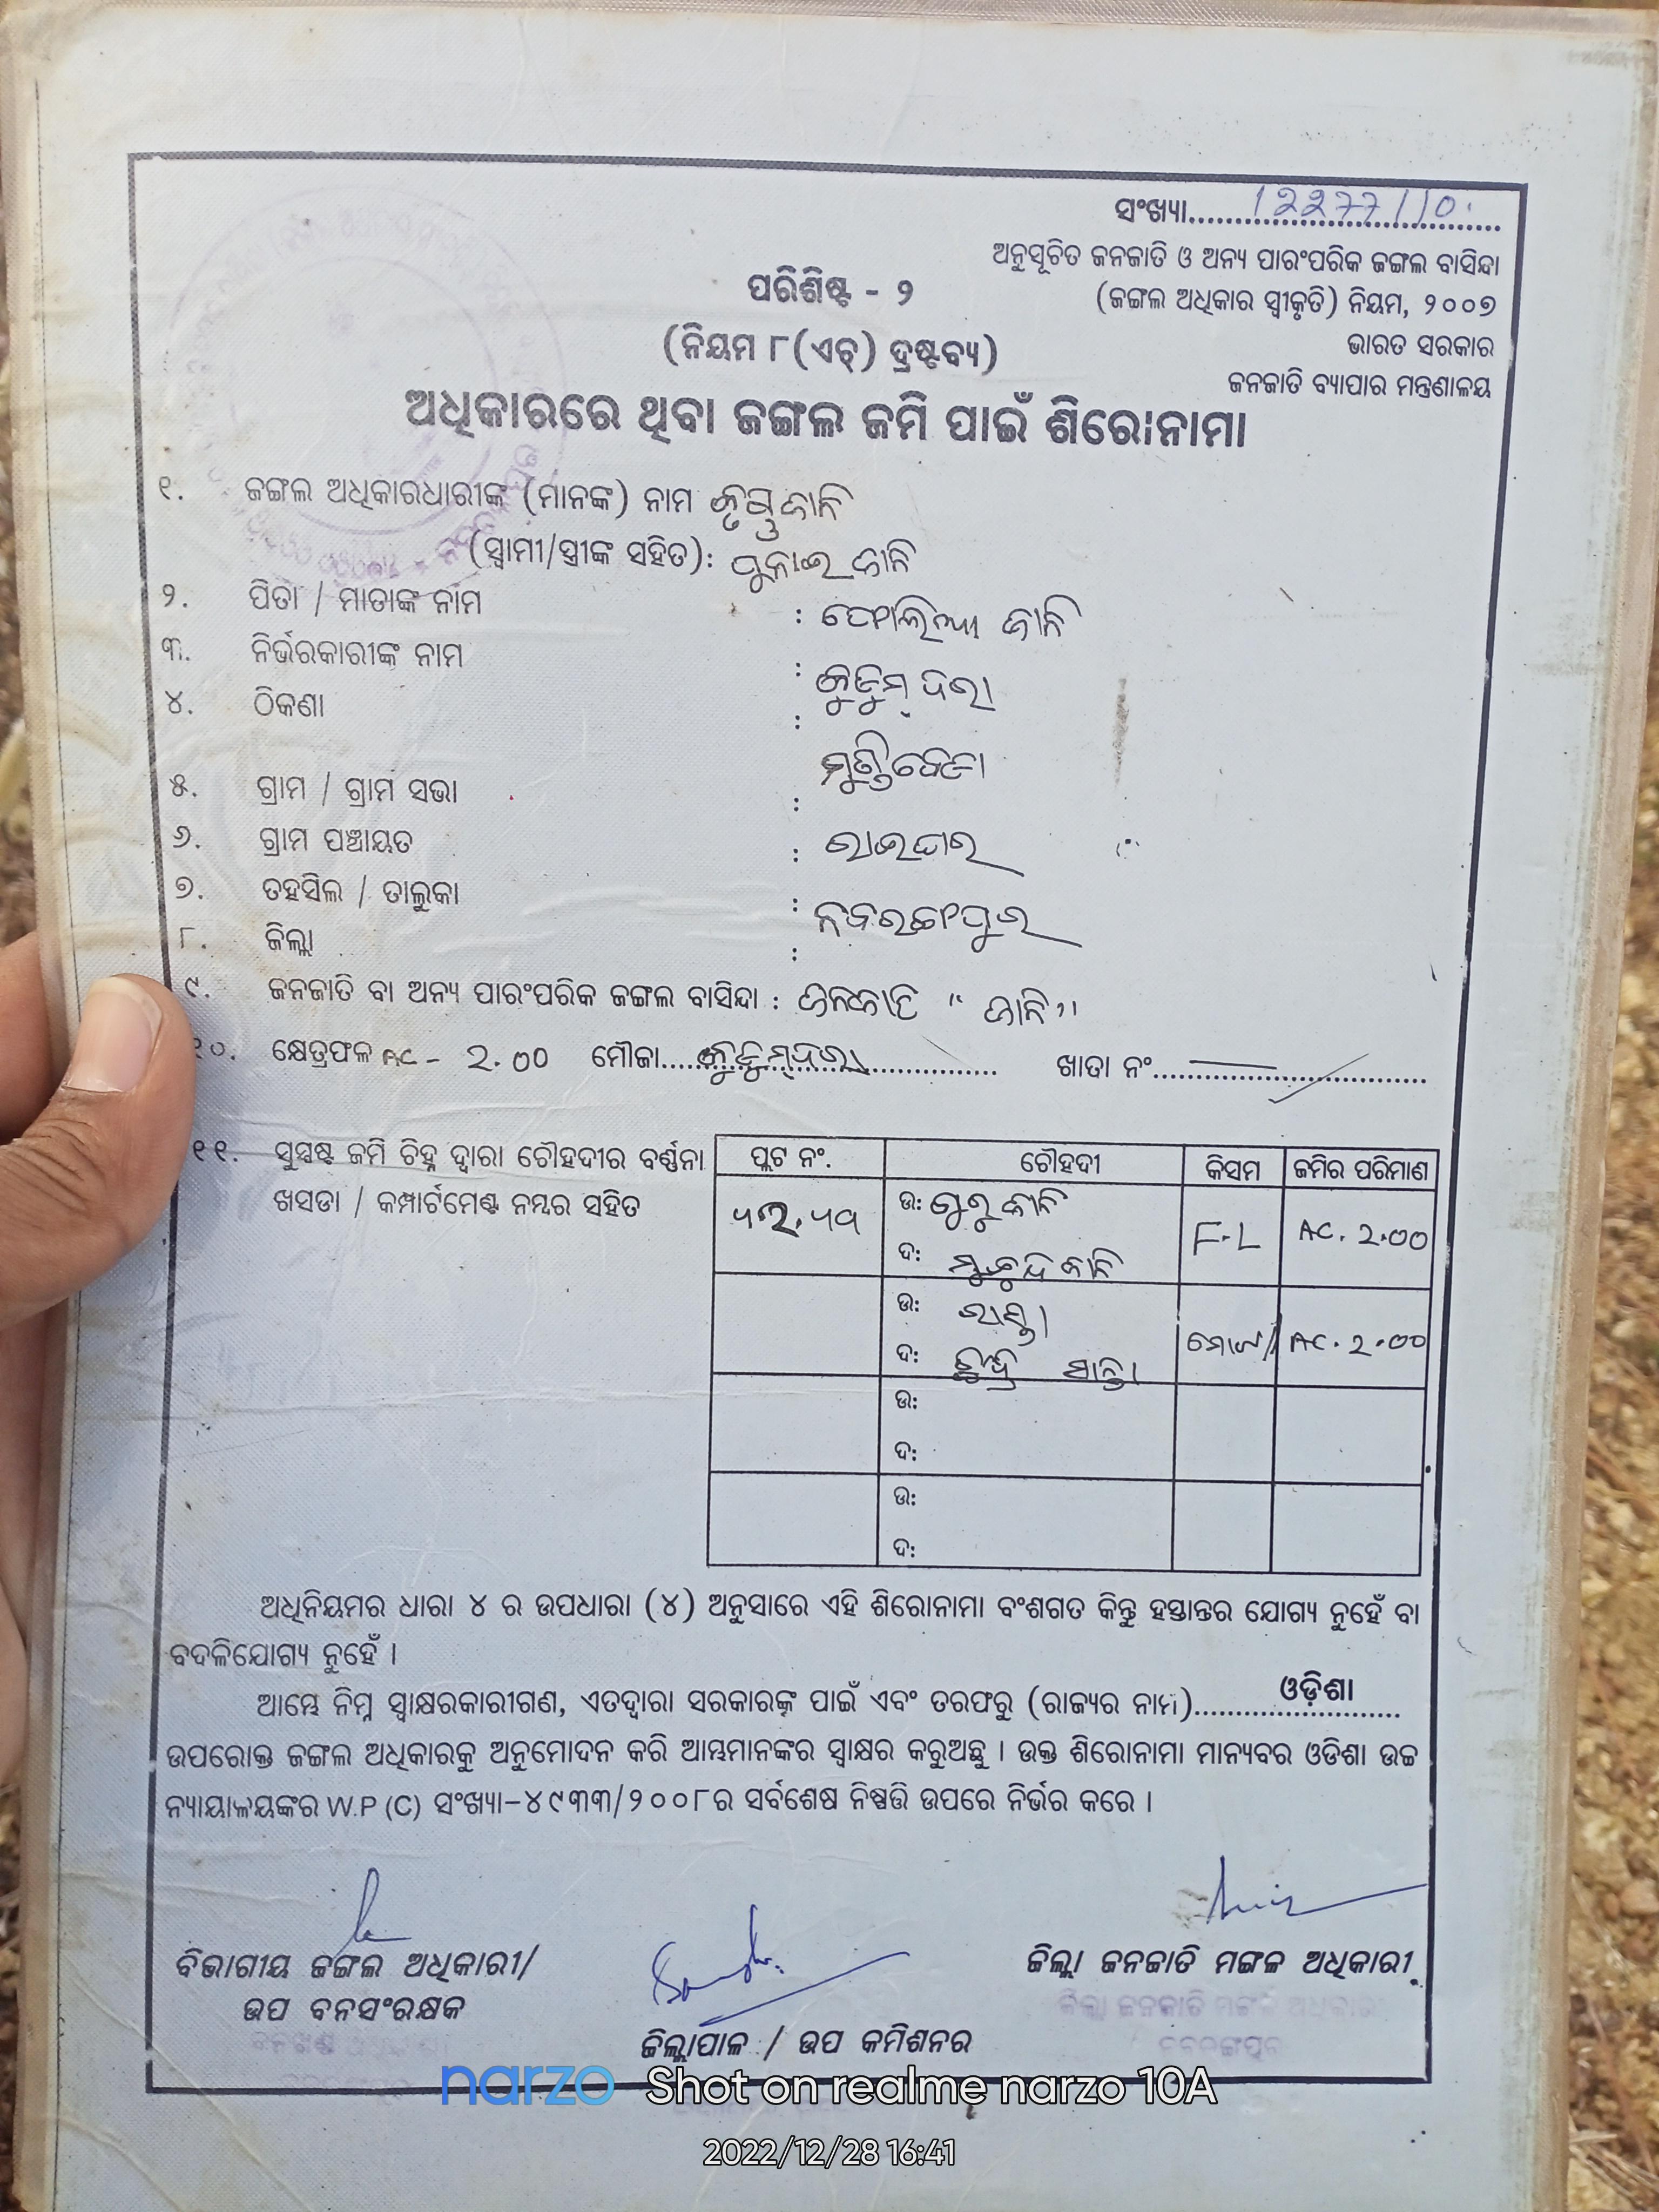 ସଂଖ୍ୟା..........12277/10
ଅନୁସୂଚିତ ଜନଜାତି ଓ ଅନ୍ୟ ପାରଂପରିକ ଜଙ୍ଗଲ ବାସିନ୍ଦା
(ଜଙ୍ଗଲ ଅଧିକାର ସ୍ୱୀକୃତି) ନିୟମ, ୨୦୦୭
ଭାରତ ସରକାର
ଜନଜାତି ବ୍ୟାପାର ମନ୍ତ୍ରଣାଳୟ
ପରିଶିଷ୍ଟ - ୨
(ନିୟମ ୮(ଏଚ୍) ଦ୍ରଷ୍ଟବ୍ୟ)
ଅଧିକାରରେ ଥିବା ଜଙ୍ଗଲ ଜମି ପାଇଁ ଶିରୋନାମା
୧. ଜଙ୍ଗଲ ଅଧିକାରଧାରୀଙ୍କ (ମାନଙ୍କ) ନାମ କୃଷ୍ଣ ଜାନି
(ସ୍ୱାମୀ/ସ୍ତ୍ରୀଙ୍କ ସହିତ): ସୁକାଇ ଜାନି
୨. ପିତା / ମାତାଙ୍କ ନାମ :
୩. ନିର୍ଭରକାରୀଙ୍କ ନାମ : ଜାନି
୪. ଠିକଣା : କୁଡୁମ୍ ଦରା
୫. ଗ୍ରାମ / ଗ୍ରାମ ସଭା :
୬. ଗ୍ରାମ ପଞ୍ଚାୟତ :
୭. ତହସିଲ / ତାଲୁକା : ରାଇଘର
୮. ଜିଲ୍ଲା : ନବରଙ୍ଗପୁର
୯. ଜନଜାତି ବା ଅନ୍ୟ ପାରଂପରିକ ଜଙ୍ଗଲ ବାସିନ୍ଦା : ଜନଜାତି " ଜାନି"
୧୦. କ୍ଷେତ୍ରଫଳ AC - 2.00 ମୌଜା.....କୁଡୁମ୍ଦରା.......... ଖାତା ନଂ....................
୧୧. ସୁସ୍ପଷ୍ଟ ଜମି ଚିହ୍ନ ଦ୍ୱାରା ଚୌହଦୀର ବର୍ଣ୍ଣନା
ଖସଡା / କମ୍ପାର୍ଟମେଣ୍ଟ ନମ୍ବର ସହିତ
ପ୍ଲଟ ନଂ. ଚୌହଦୀ କିସମ ଜମିର ପରିମାଣ
ଉ: ଗୁରୁ ଜାନି F.L AC. 2.00
ଦ: ମୁକୁନ୍ଦ ଜାନି
ଉ: ରାସ୍ତା ମୋଟ AC. 2.00
ଦ: ସାନ୍ତା
ଉ:
ଦ:
ଉ:
ଦ:
ଅଧିନିୟମର ଧାରା ୪ ର ଉପଧାରା (୪) ଅନୁସାରେ ଏହି ଶିରୋନାମା ବଂଶଗତ କିନ୍ତୁ ହସ୍ତାନ୍ତର ଯୋଗ୍ୟ ନୁହେଁ ବା
ବଦଳିଯୋଗ୍ୟ ନୁହେଁ ।
ଆମ୍ଭେ ନିମ୍ନ ସ୍ୱାକ୍ଷରକାରୀଗଣ, ଏତଦ୍ୱାରା ସରକାରଙ୍କ ପାଇଁ ଏବଂ ତରଫରୁ (ରାଜ୍ୟର ନାମ)..........ଓଡ଼ିଶା
ଉପରୋକ୍ତ ଜଙ୍ଗଲ ଅଧିକାରକୁ ଅନୁମୋଦନ କରି ଆମ୍ଭମାନଙ୍କର ସ୍ୱାକ୍ଷର କରୁଅଛୁ । ଉକ୍ତ ଶିରୋନାମା ମାନ୍ୟବର ଓଡିଶା ଉଚ୍ଚ
ନ୍ୟାୟାଳୟଙ୍କର W.P (C) ସଂଖ୍ୟା-୪୯୩୩/୨୦୦୮ର ସର୍ବଶେଷ ନିଷ୍ପତ୍ତି ଉପରେ ନିର୍ଭର କରେ ।
ବିଭାଗୀୟ ଜଙ୍ଗଲ ଅଧିକାରୀ/
ଉପ ବନସଂରକ୍ଷକ
ଜିଲ୍ଲାପାଳ / ଉପ କମିଶନର
ଜିଲ୍ଲା ଜନଜାତି ମଙ୍ଗଳ ଅଧିକାରୀ
ଜିଲ୍ଲା ଜନଜାତି ମଙ୍ଗଳ ଅଧିକାରୀ
ନବରଙ୍ଗପୁର
narzo Shot on realme narzo 10A
2022/12/28 16:41